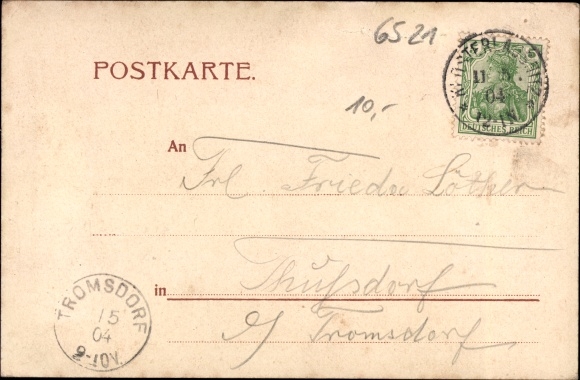 6521
POSTKARTE.
10,-
11 5
04
DEUTSCHES REICH
An
Frl. Frieda
in
Thußdorf
b/ Tromsdorf
TROMSDORF
15
04
9-10V.